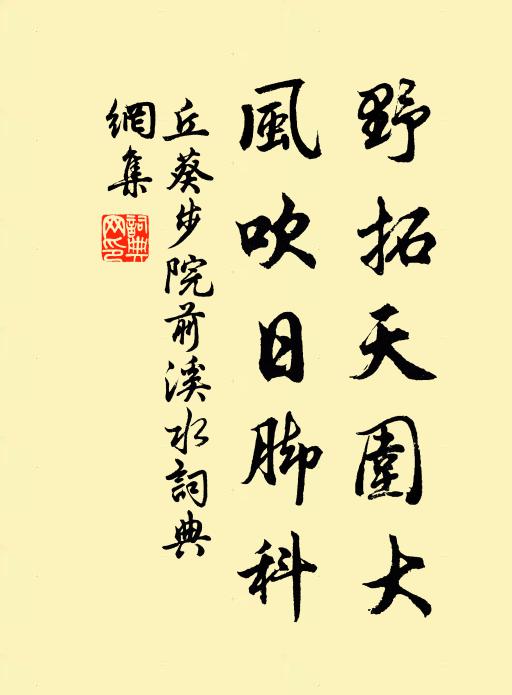 野拓天圍大
風吹日脚科
丘葵步院前溪水詞典
網集
詞典
网印